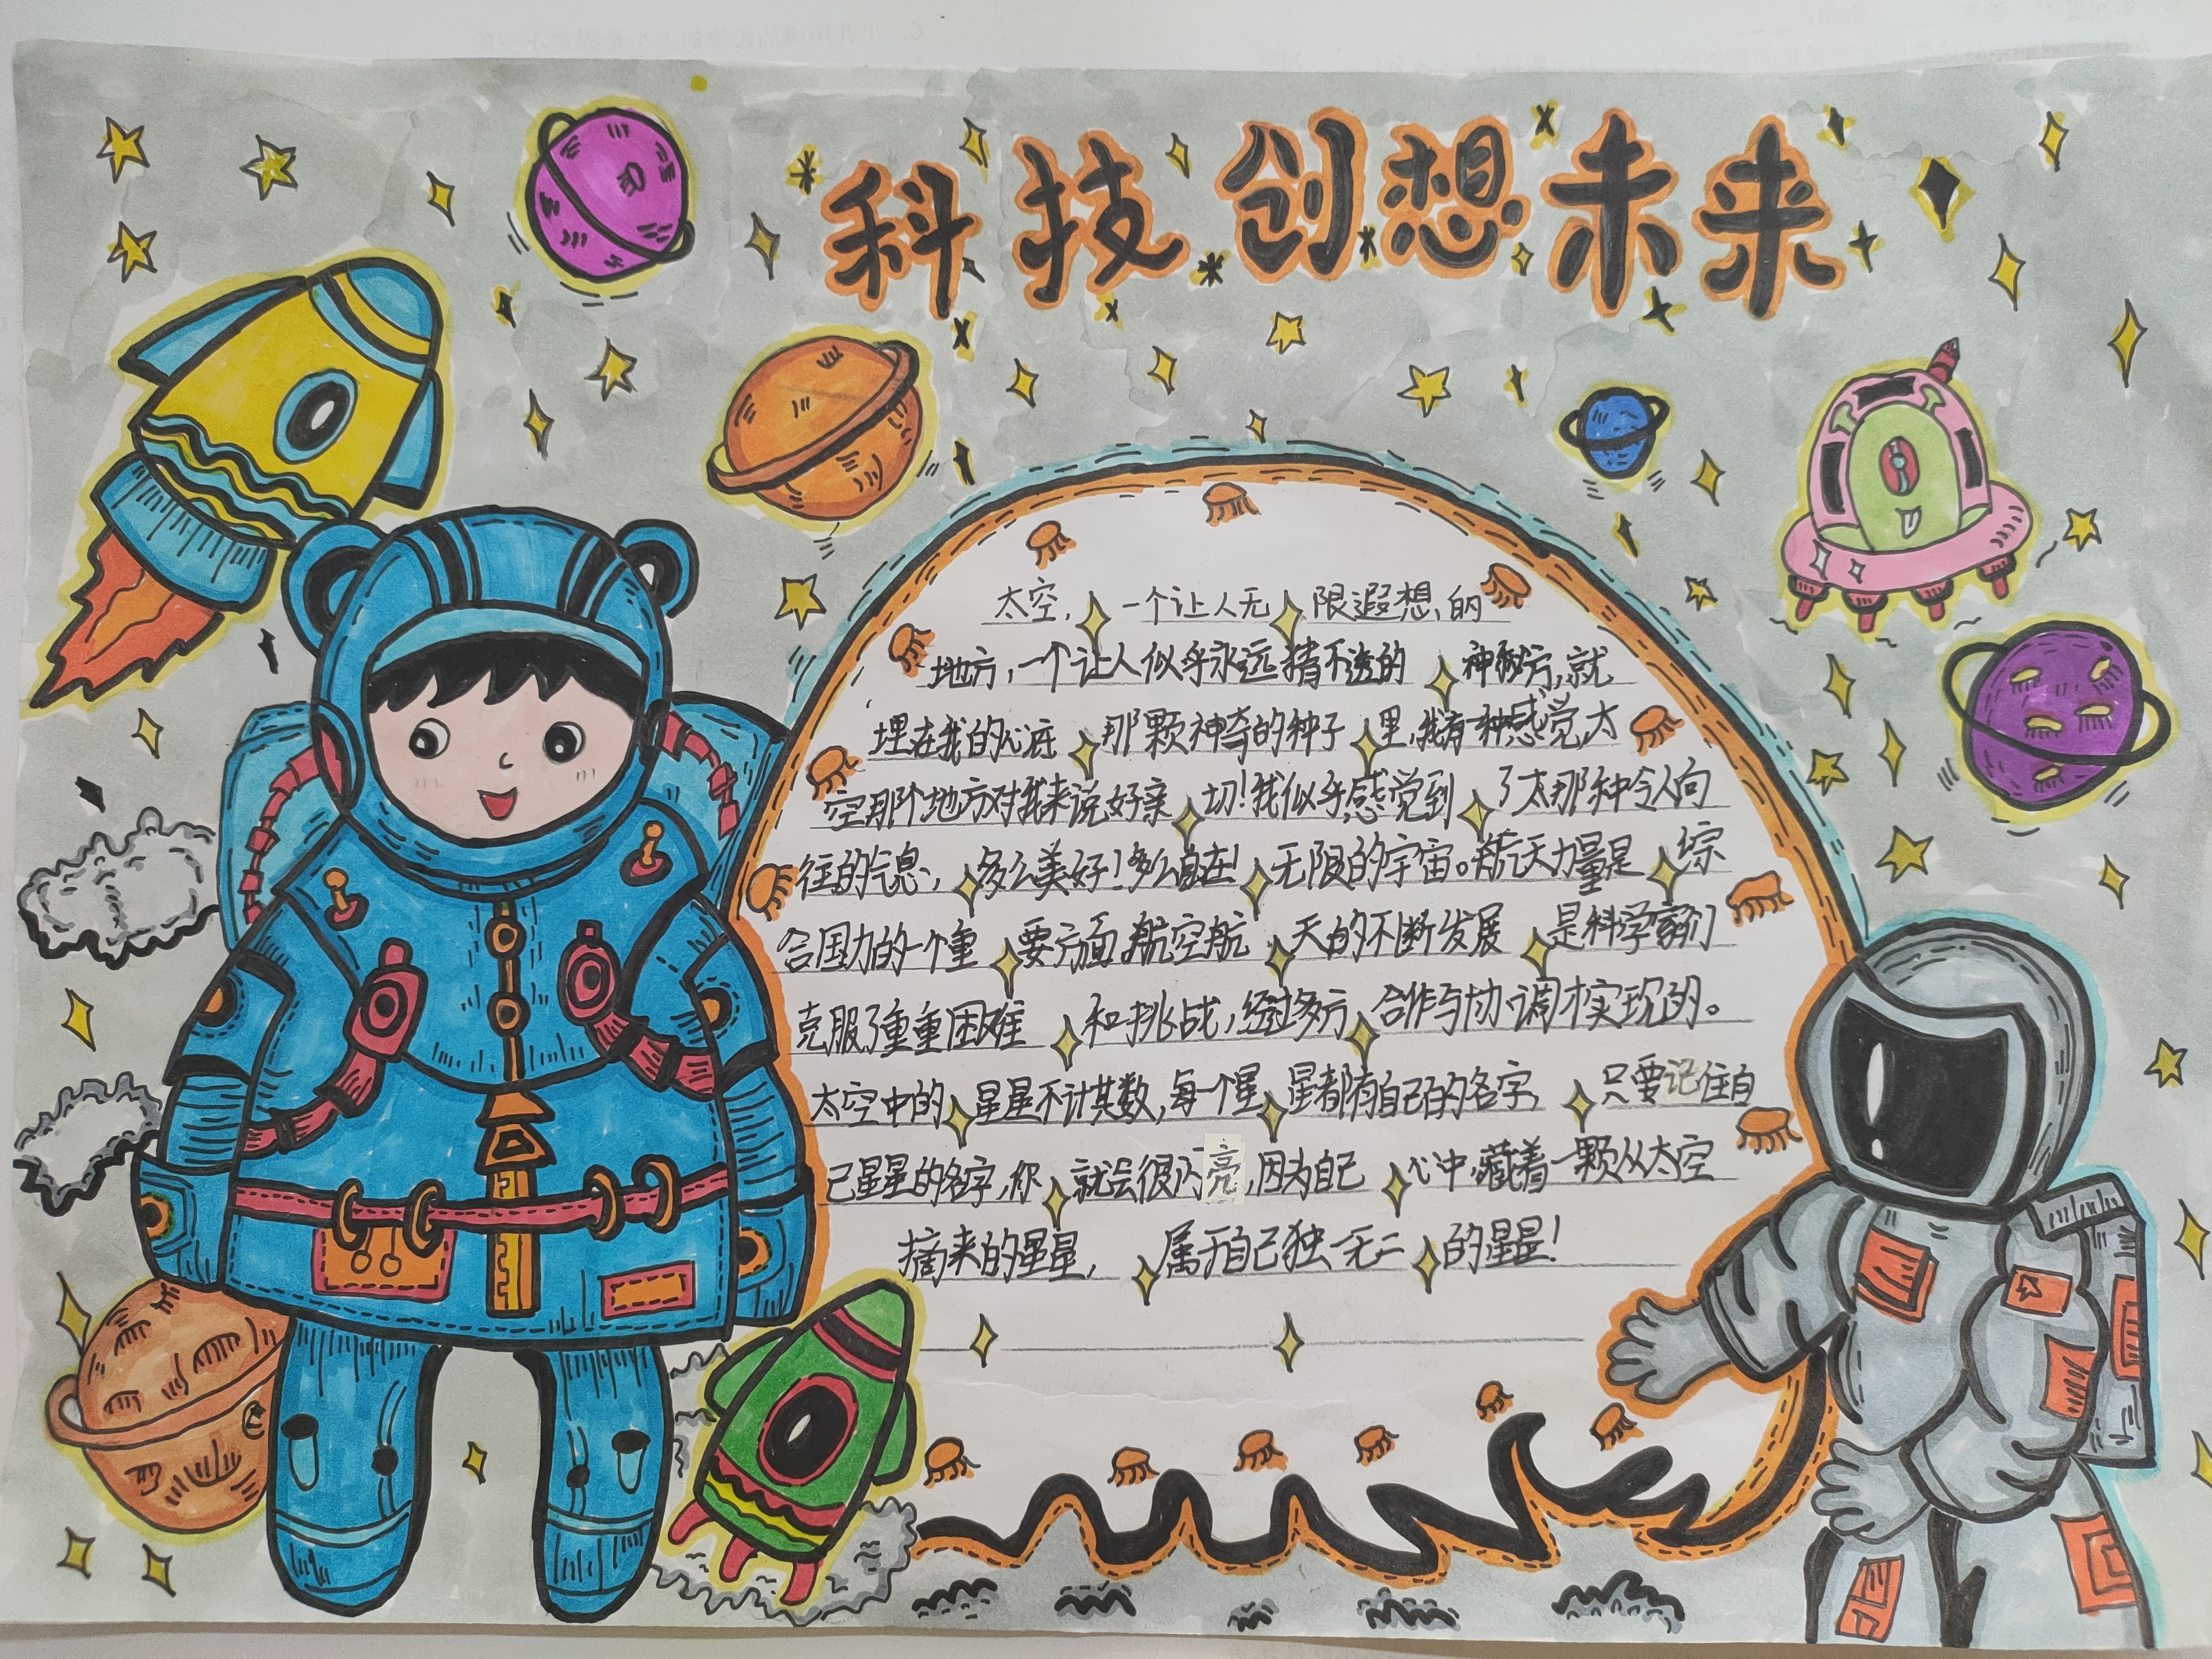 科技创想未来
太空，一个让人无限遐想的
地方，一个让人似乎永远猜不透的神秘方，就
埋在我的心底那颗神奇的种子里，我有一种感觉，太
空那个地方对我来说好亲切！我似乎感觉到了太那种令人向
往的气息，多么美好！多么自在！无限的宇宙。航天力量是综
合国力的一个重要方面。航空航天的不断发展是科学家们
克服了重重困难和挑战，经过多方合作与协调才实现的。
太空中的星星不计其数，每一个星星都有自己的名字，只要记住自
己星星的名字，你就会很闪亮，因为自己心中，藏着一颗从太空
摘来的星星，属于自己独一无二的星星！